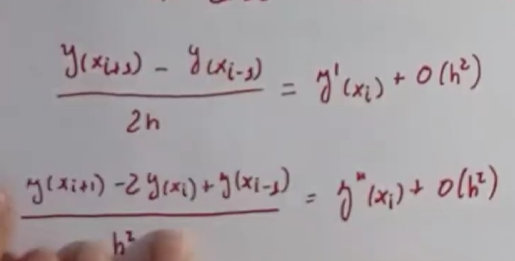 y(xi+1) - y(xi-1) / 2h = y'(xi) + O(h²)
y(xi+1) - 2y(xi) + y(xi-1) / h² = y"(xi) + O(h²)